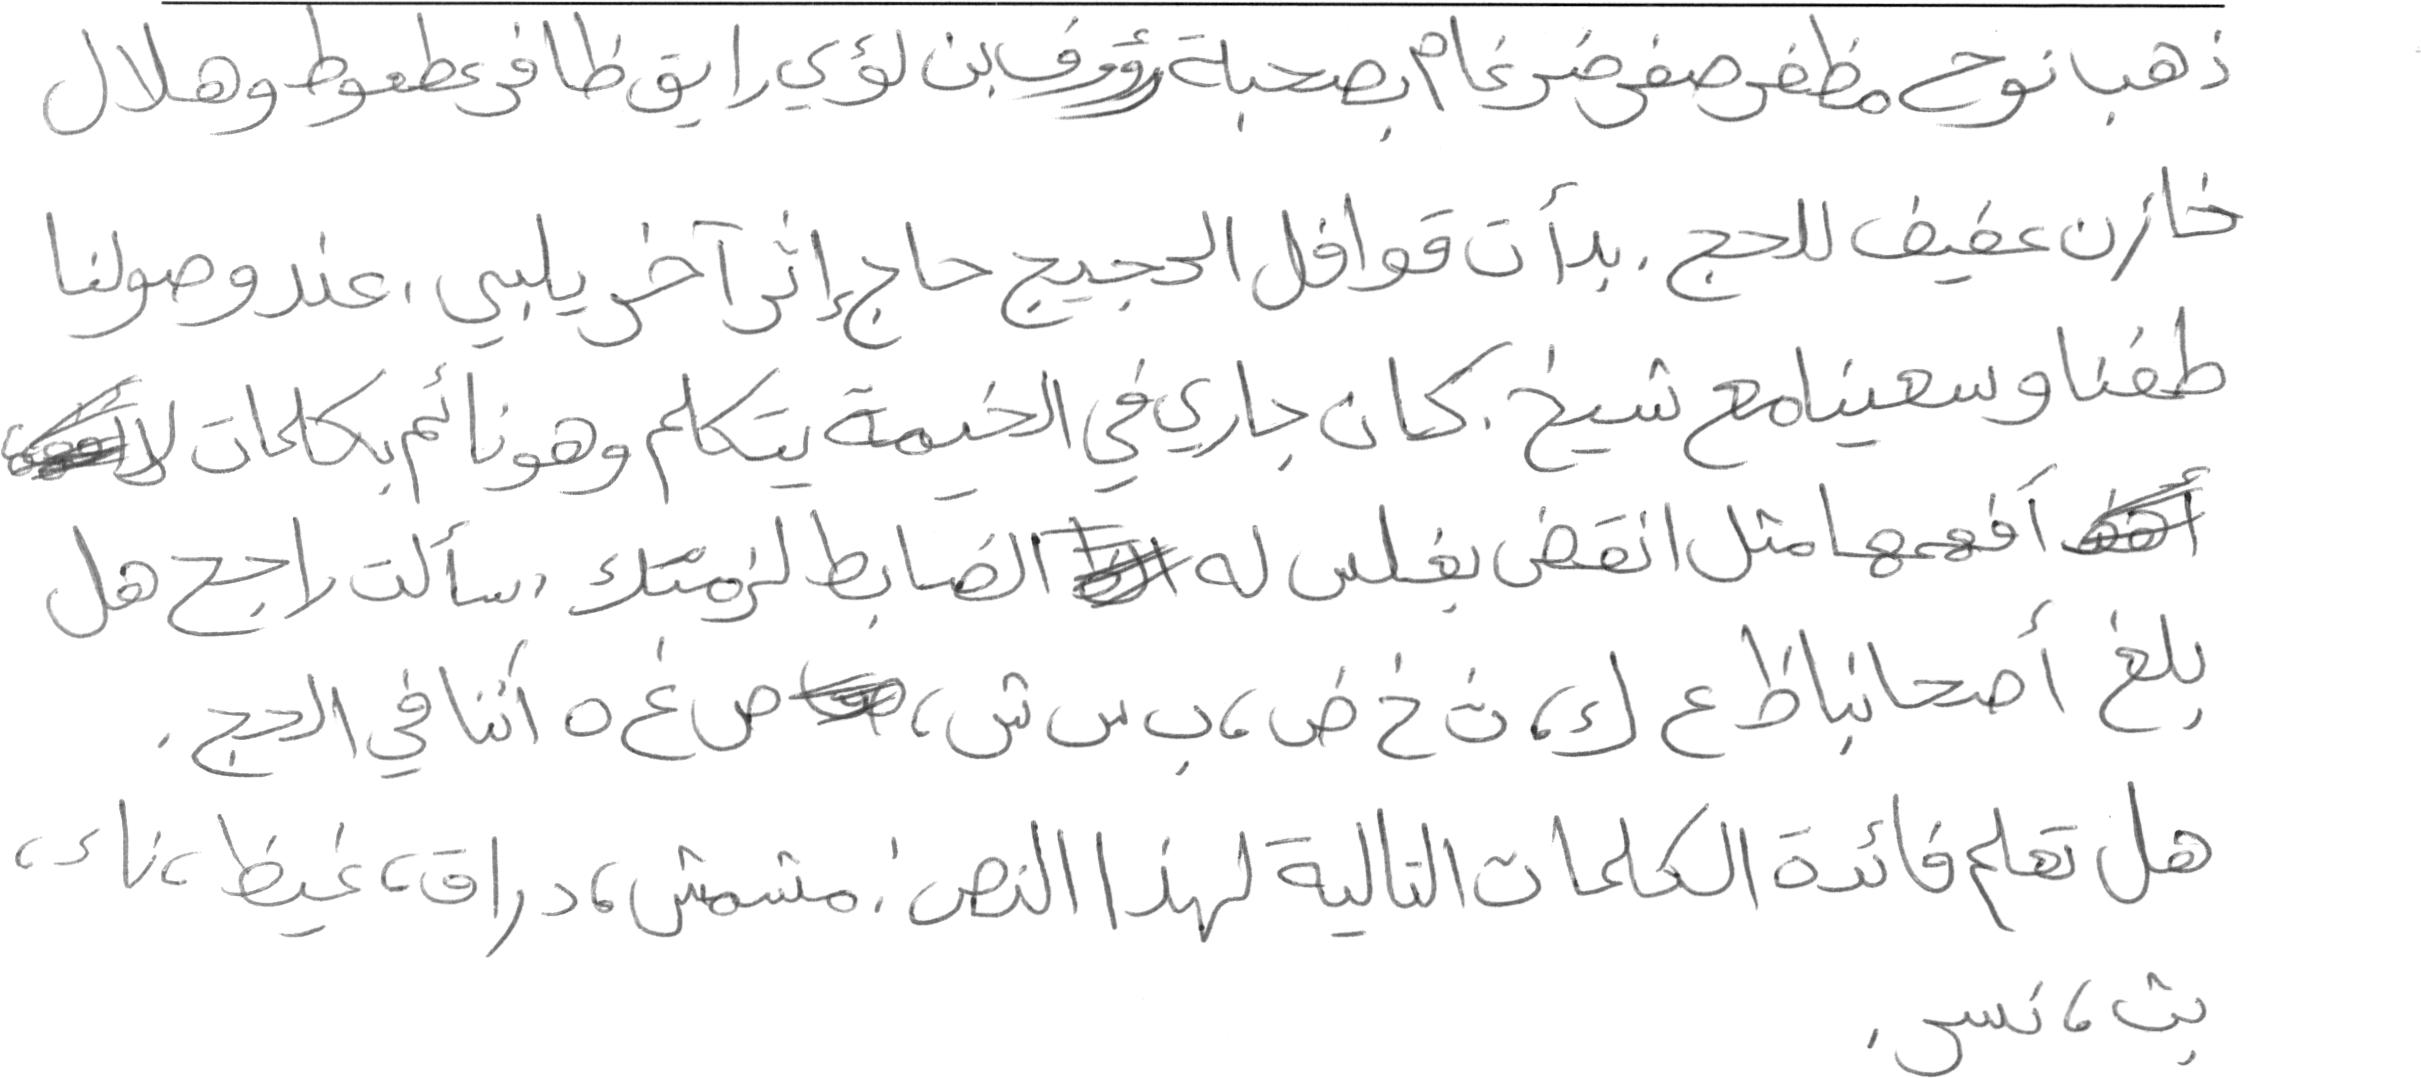 ذهب نوح مظفر صفر ضرغام بصحبة رؤوف بن لؤي رايق ظافر عطعوط وهلال
خازن عفيف للحج. بدأت قوافل الحجيج حاج إثر آخر يلبي، عند وصولنا
طفنا وسعينا مع شيخ. كان جاري في الخيمة يتكلم وهو نائم بكلمات لا
أفهمها مثل انقض بغلس له الضابط لزمتك. سألت راجح هل
بلغ أصحابنا ظ ع ك، ث خ ض، ب س ش، ص غ ه أننا في الحج.
هل تعلم فائدة الكلمات التالية لهذا النص: مشمش، دراق، غيظ، ناء،
بث، نسر.